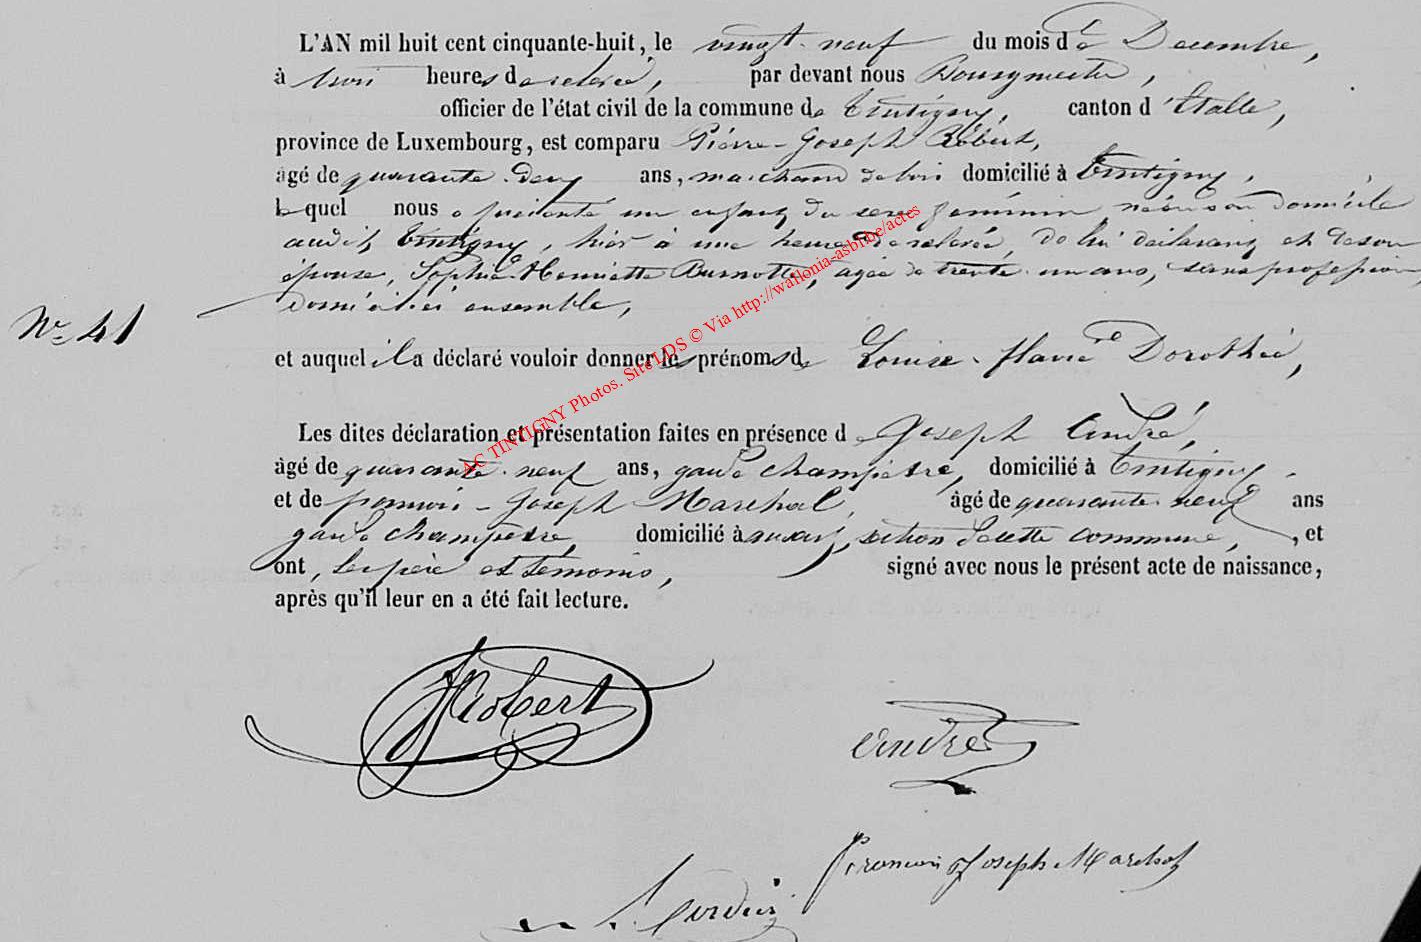 L'AN mil huit cent cinquante-huit, le vingt-neuf du mois de Decembre,
à trois heures de relevée, par devant nous Bourgmestre,
officier de l'état civil de la commune de Tintigny, canton d'Etalle,
province de Luxembourg, est comparu Piérre-Joseph Robert,
âgé de quarante-deux ans, marchand de bois domicilié à Tintigny,
lequel nous a présenté un enfant du sexe féminin, né en son domicile
audit Tintigny, hier à une heure de relevée, de lui déclarant et de son
épouse, Sophie-Henriette Burnotte, agée de trente-un ans, sans profession,
domiciliés ensemble,
N° 41
et auquel il a déclaré vouloir donner les prénoms de Louise-flavie Dorothée,
Les dites déclaration et présentation faites en présence de Joseph André,
âgé de quarante-neuf ans, garde champêtre, domicilié à Tintigny
et de françois-Joseph Maréchal, âgé de quarante-neuf ans
garde champêtre, domicilié à ansart, section de cette commune, , et
ont, les père et témoins, signé avec nous le présent acte de naissance,
après qu'il leur en a été fait lecture.
AC TINTIGNY Photos. Site LDS © Via http://wallonia-asbl.be/actes
Robert
André
francois Joseph Marechal